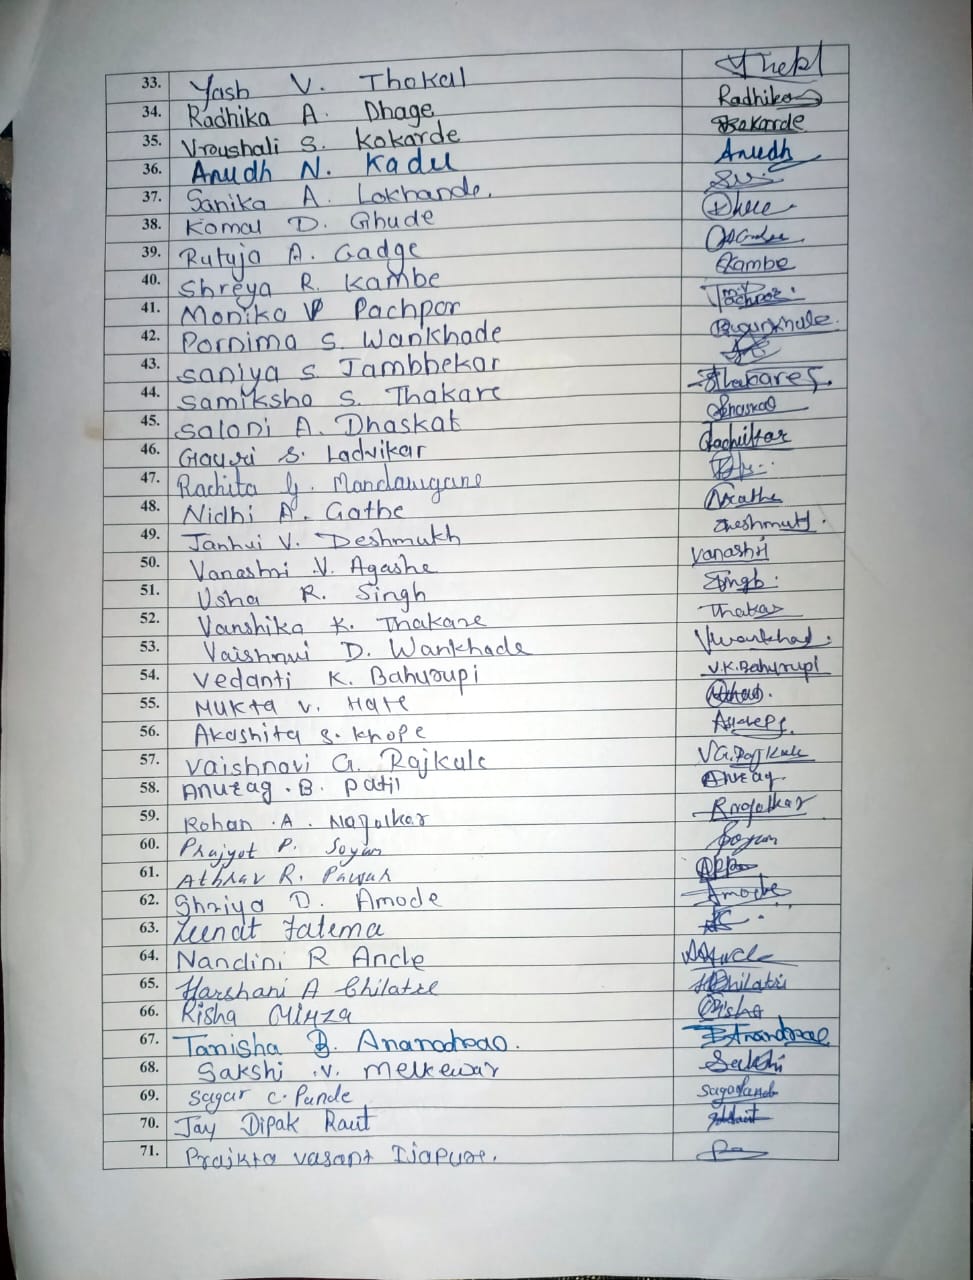 33. Yash V. Thokal Thokl
34. Radhika A. Dhage Radhika
35. Vroushali S. Kokarde Kokarde
36. Anudh N. Kadu Anudh
37. Sanika A. Lokhande.
38. Komal D. Ghude
39. Rutuja A. Gadge
40. Shreya R. Kambe Kambe
41. Monika V Pachpor
42. Pornima S. Wankhade
43. Saniya S. Jambhekar
44. Samiksha S. Thakare Thakares.
45. Saloni A. Dhaskat
46. Gauri S. Ladvikar
47. Rachita G. Mandavgane
48. Nidhi A. Gathe
49. Janhui V. Deshmukh Deshmukh.
50. Vanashri V. Agashe Vanashri
51. Usha R. Singh Singh.
52. Vanshika K. Thakare Thakar
53. Vaishnavi D. Wankhade Vwankhad.
54. Vedanti K. Bahurupi V.K.Bahurupi
55. Mukta V. Hate
56. Akashita S. Khope
57. Vaishnavi G. Rajkule VG.Rajkule
58. Anurag .B. Patil Anurag.
59. Rohan .A. Nagolkar RNagolkar
60. Prajyot P. Soyam Soyam
61. Athrav R. Pawar
62. Shriya D. Amode Amode
63. Zeenat Fatema
64. Nandini R Ancle
65. Harshani A Chilatre HChilatri
66. Risha Mirza Risha
67. Tanisha B. Anandrao. BAnandrao
68. Sakshi .V. Melkewar Sakshi
69. Sagar C. Pande SagarPande
70. Jay Dipak Raut
71. Prajkta Vasant Ijapure.